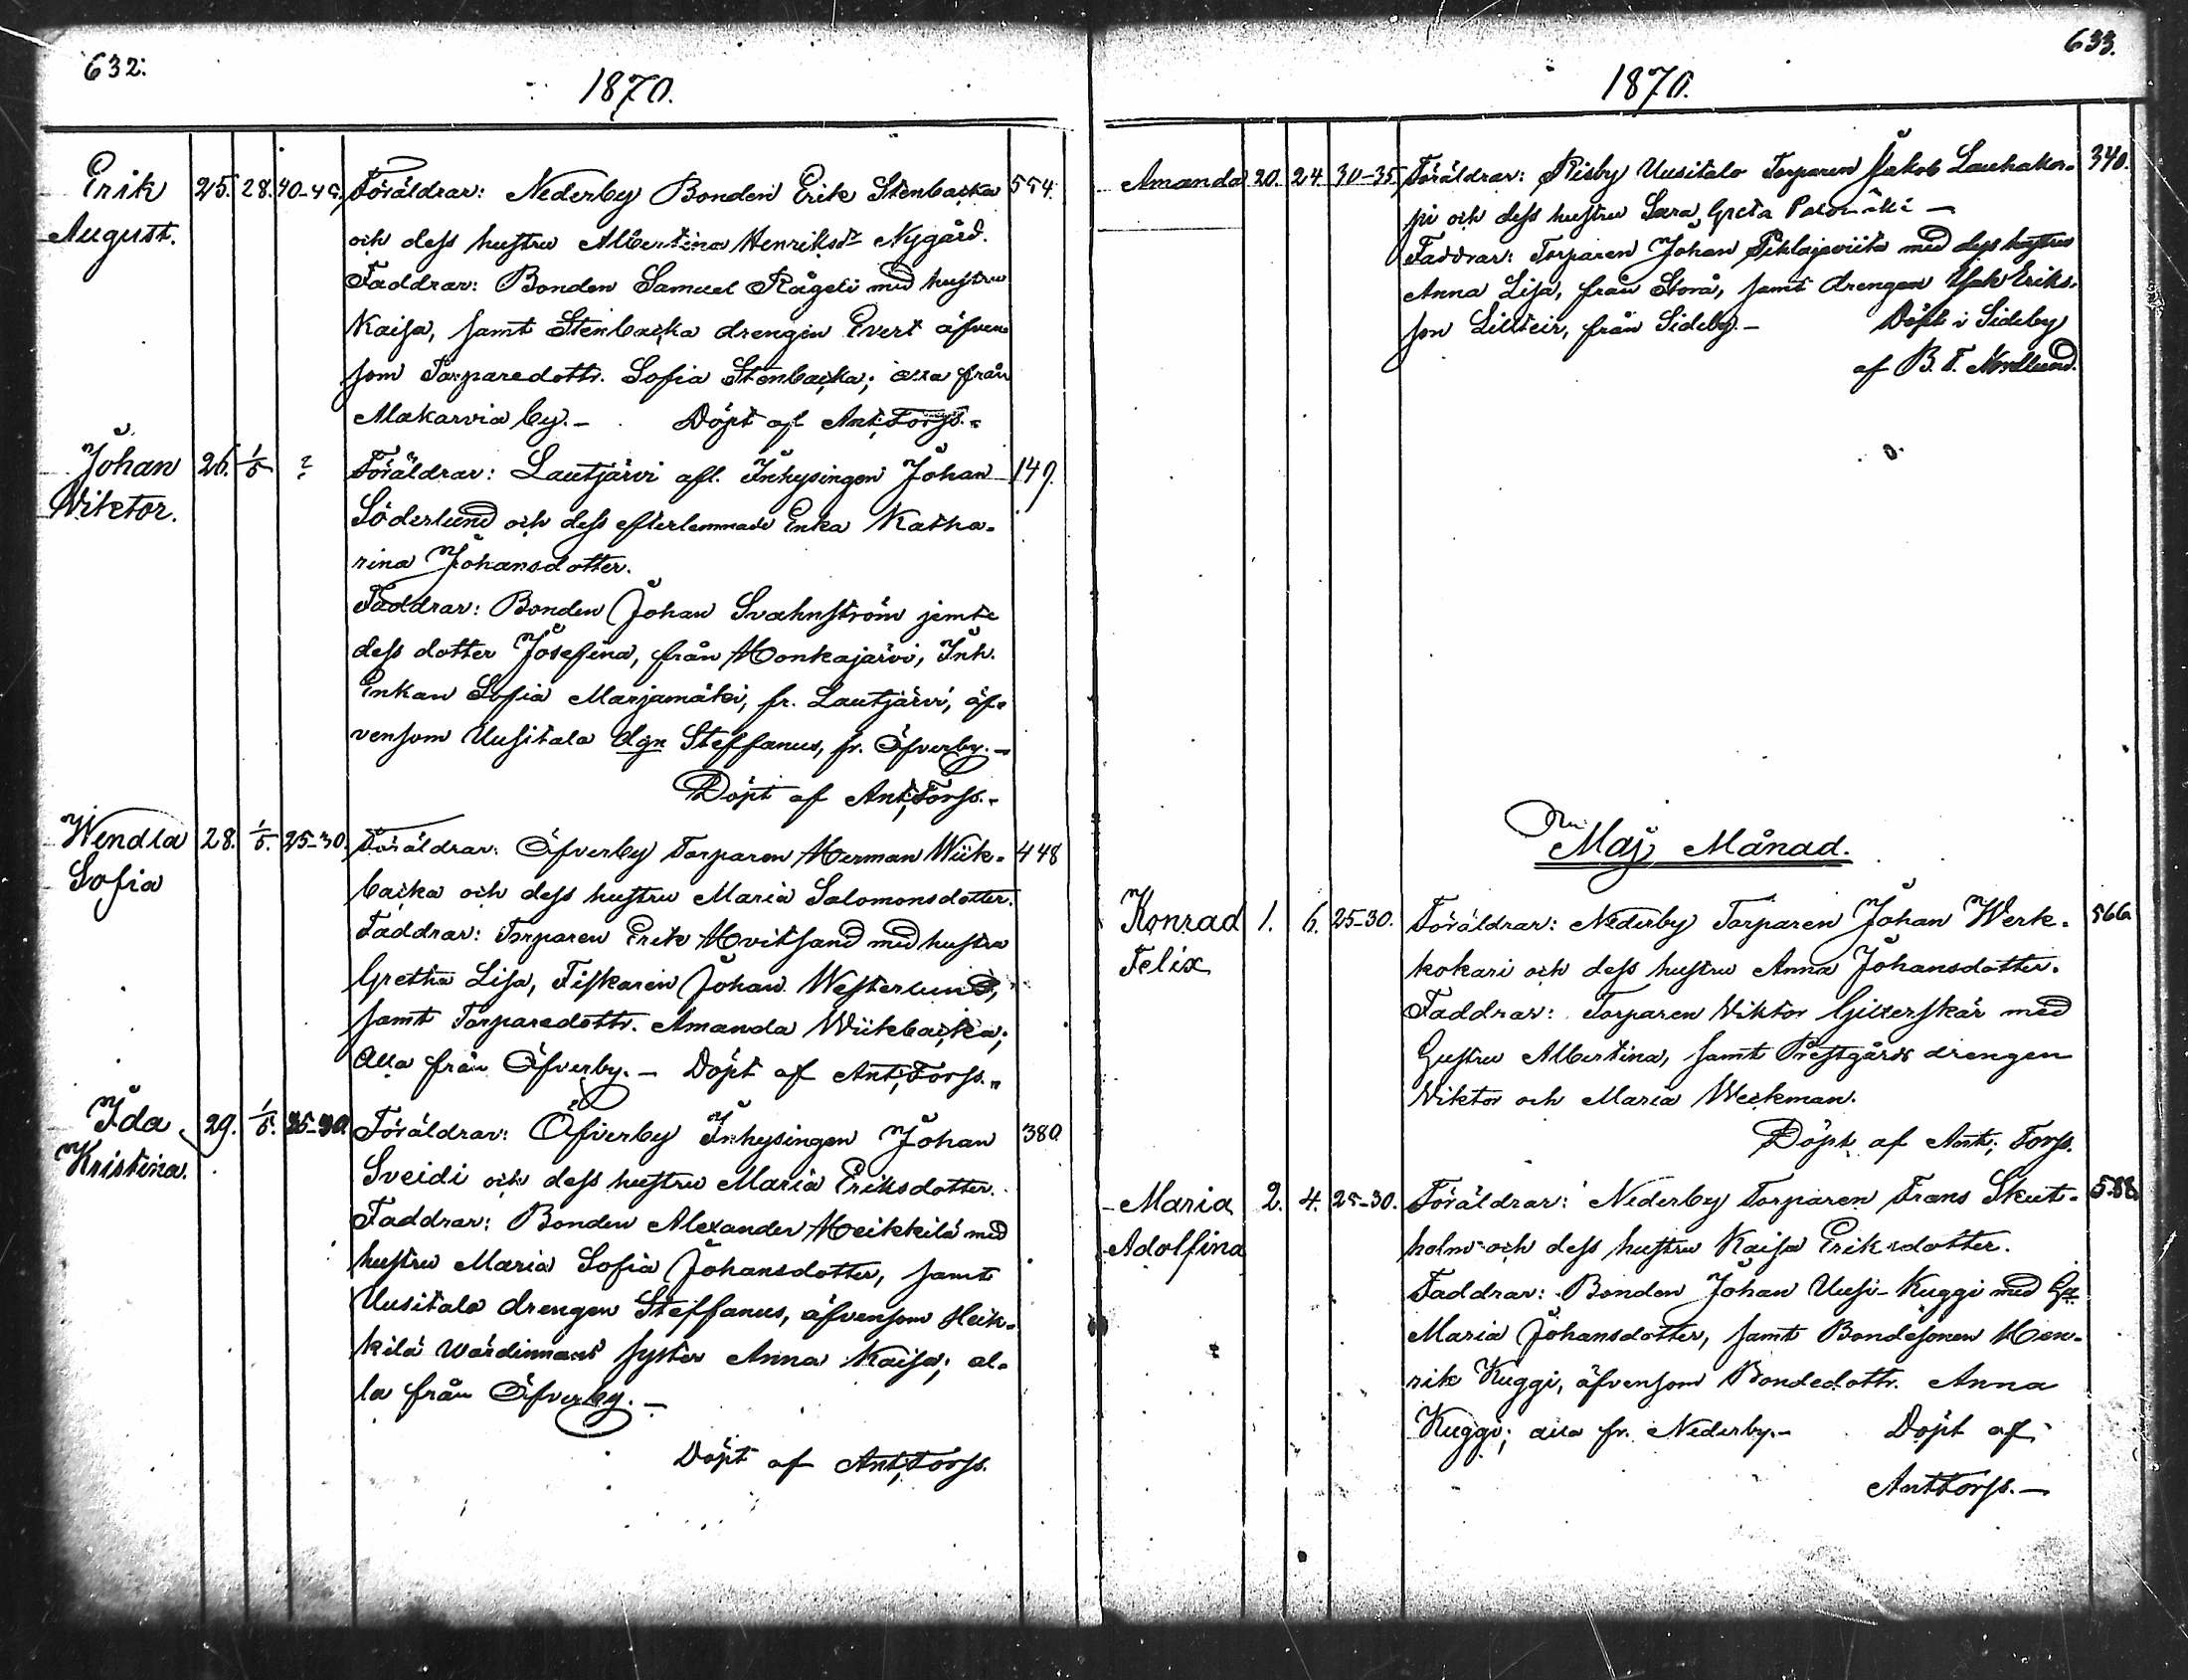 632.
1870.
Erik 25. 28. 40-45. Föräldrar: Nederby Bonden Erik Stenbacka 554.
August. och dess hustru Albertina Henriksdr Nygård.
Faddrar: Bonden Samuel Rågeli med hustru
Kaisa, samt Stenbacka drengen Evert äfven
som Torparedottr. Sofia Stenbacka; alla från
Makarvia by. – Döpt af Ant; Forss. –
Johan 26. 1/5 ? Föräldrar: Lautjärvi afl. Inhysingen Johan 149.
Viktor. Söderlund och dess efterlemnade Enka Katha-
rina Johansdotter.
Faddrar: Bonden Johan Svahnström jemte
dess dotter Josefina, från Honkajärvi, Inh.
Enkan Sofia Marjamäki, fr. Lautjärvi, äf-
vensom Uusitalo dgn Steffanus, fr. Öfverby. –
Döpt af Ant; Forss. –
Wendla 28. 1/5. 25-30. Föräldrar: Öfverby Torparen Herman Wiik- 448
Sofia backa och dess hustru Maria Salomonsdotter.
Faddrar: Torparen Erik Hvitsand med hustru
Gretha Lisa, Fiskaren Johan Westerlund,
samt Torparedottr. Amanda Wiikbacka;
Alla från Öfverby. – Döpt af Ant; Forss. –
Ida 29. 1/5. 25-30. Föräldrar: Öfverby Inhysingen Johan 380.
Kristina. Sveidi och dess hustru Maria Eriksdotter.
Faddrar: Bonden Alexander Heikkilä med
hustru Maria Sofia Johansdotter, samt
Uusitalo drengen Steffanus, äfvensom Heik-
kilä Wärdinnans syster Anna Kaisa; al-
la från Öfverby. –
Döpt af Ant; Forss.
633.
1870.
Amanda 20. 24. 30-35. Föräldrar: Risby Uusitalo Torparen Jakob Lauhakor- 340.
pi och dess hustru Sara Greta –
Faddrar: Torparen Johan med dess hustru
Anna Lisa, från Storå, samt drengen Isak Eriks-
son från Sideby. – Döpt i Sideby
af B. T. Nordlund.
Maj Månad.
Konrad 1. 6. 25-30. Föräldrar: Nederby Torparen Johan Werk- 566
Felix kokari och dess hustru Anna Johansdotter.
Faddrar: Torparen Viktor Gillerskär med
Hustru Albertina, samt Prestgårds drengen
Viktor och Maria Weckman.
Döpt af Ant; Forss.
Maria 2. 4. 25-30. Föräldrar: Nederby Torparen Frans Skut- 588.
Adolfina holm och dess hustru Kaisa Eriksdotter.
Faddrar: Bonden Johan Uusi-Kuggi med Hu
Maria Johansdotter, samt Bondesonen Hen-
rik Kuggi, äfvensom Bondedottr. Anna
Kuggi; alla fr. Nederby. – Döpt af
Ant Forss. –